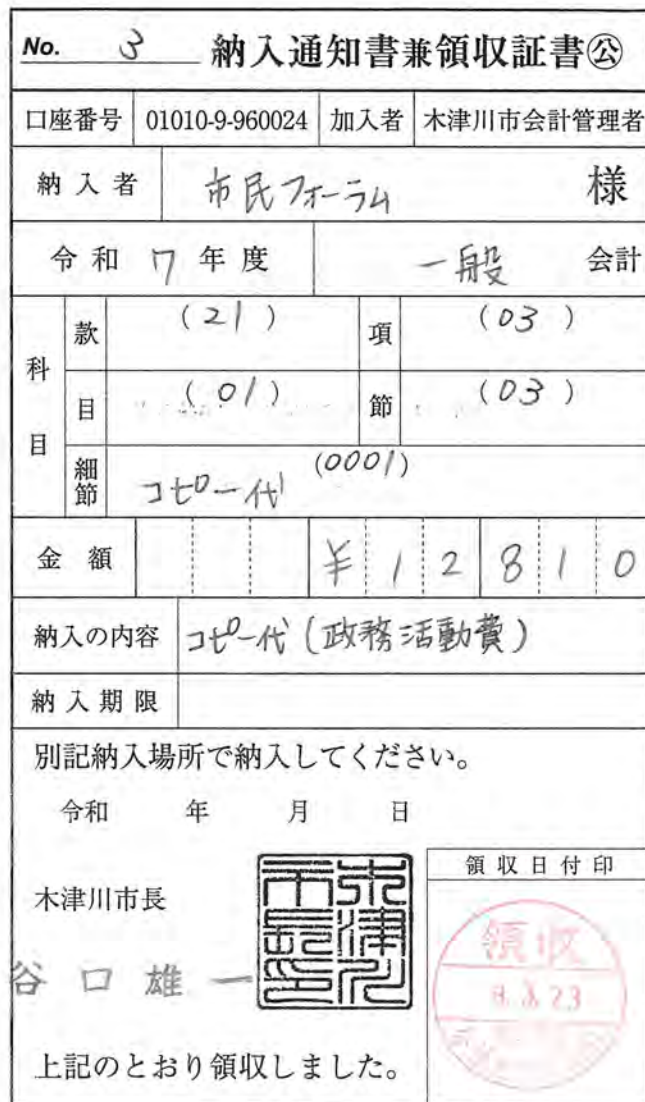 No. 3 納入通知書兼領収証書㊎
口座番号 01010-9-960024 加入者 木津川市会計管理者
納入者 市民フォーラム 様
令和 7 年度 一般 会計
科目 款 (21) 項 (03)
目 (01) 節 (03)
細節 コピー代 (0001)
金額 ¥12810
納入の内容 コピー代(政務活動費)
納入期限
別記納入場所で納入してください。
令和 年 月 日
木津川市長
谷口雄一
木津川市長印
領収日付印
領収
上記のとおり領収しました。